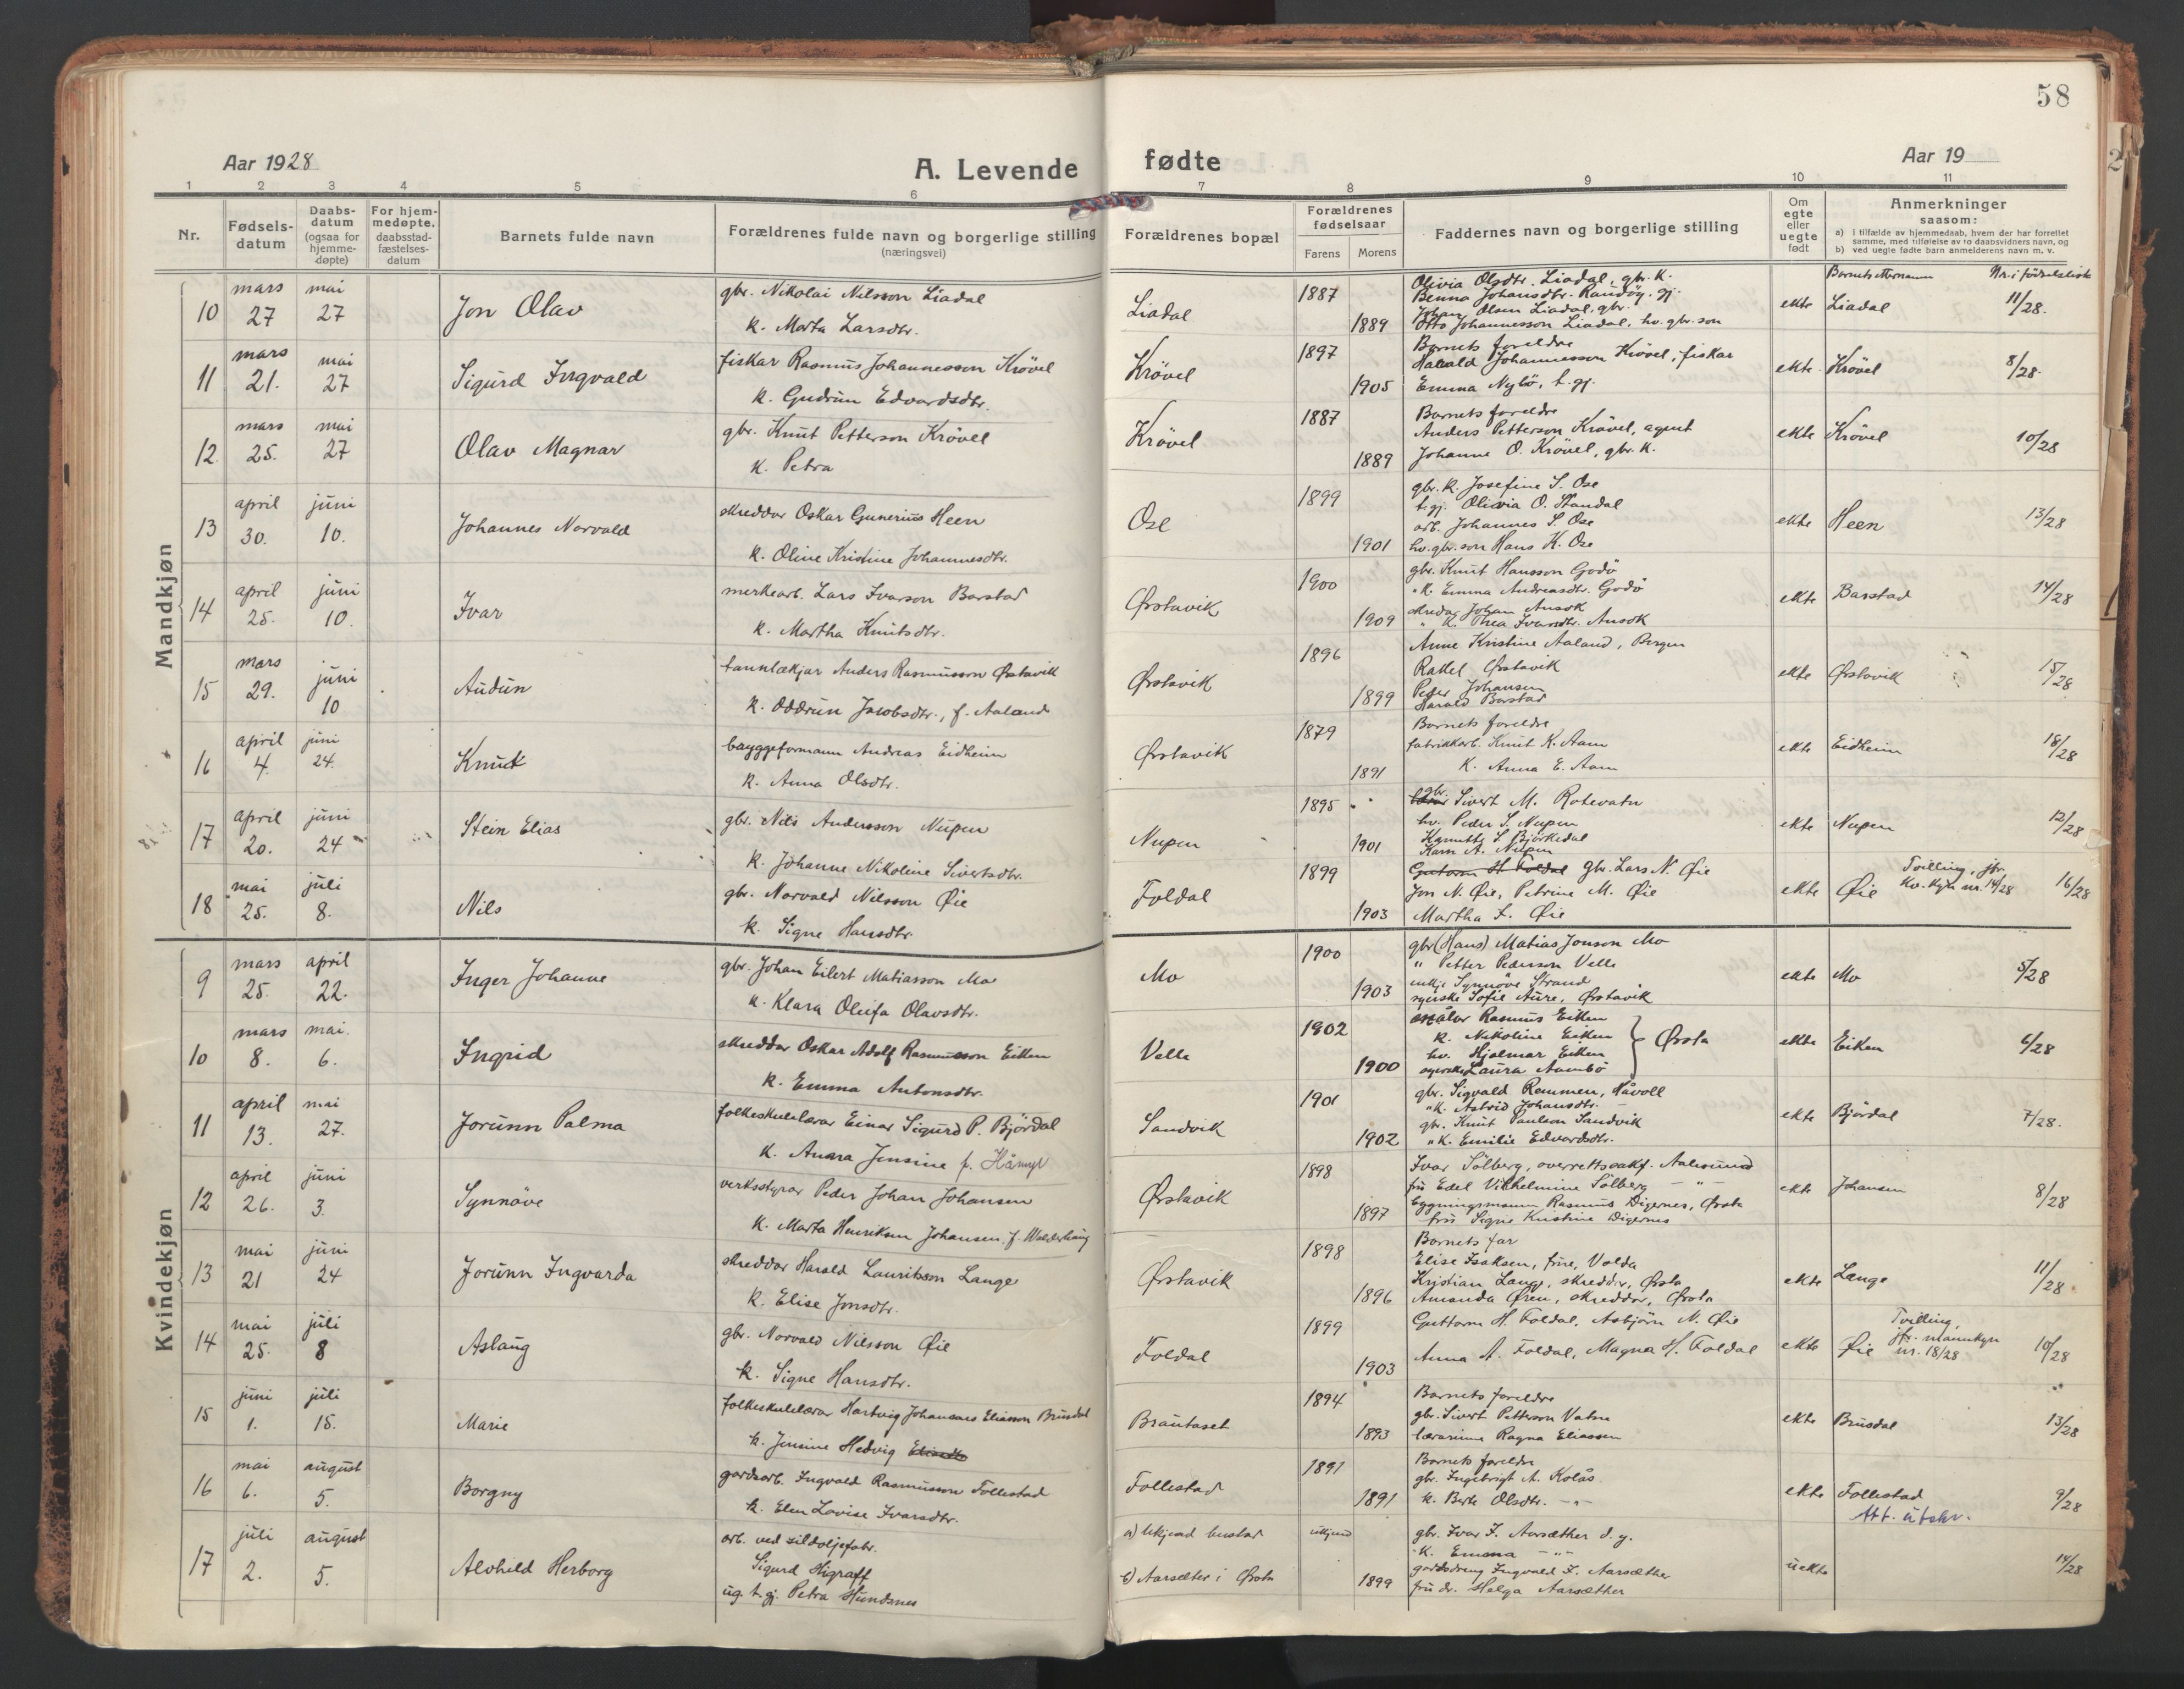 58
Aar 1928
A. Levende fødte
Aar 19
1 2 3 4 5 6 7 8 9 10 11
Nr.
Fødsels-
datum
Daabs-
datum
(ogsaa for
hjemme-
døpte)
For hjem-
medøpte,
daabsstad-
fæstelses-
datum
Barnets fulde navn
Forældrenes fulde navn og borgerlige stilling
(næringsvei)
Forældrenes bopæl
Forældrenes
fødselsaar
Farens Morens
Faddernes navn og borgerlige stilling
Om
egte
eller
uegte
født
Anmerkninger
saasom:
a) i tilfælde av hjemmedaab, hvem der har forrettet
samme, med tilføielse av to daabsvidners navn, og
b) ved uegte fødte barn anmelderens navn m. v.
Barnets etternamn Nr. i fødselsliste
Mandkjøn
10 mars 27 mai 27 Jon Olav
gbr. Nikolai Nilsson Liadal
k. Marta Larsdtr.
Liadal 1887 1889
Olivia Olsdtr. Liadal, gbr. k.
Benna Johansdtr. Randöy. gj.
Johan Olsen Liadal, gbr.
Otto Johannesson Liadal, hv. gbr. son
ekte Liadal 11/28.
11 mars 21. mai 27 Sigurd Ingvald
fiskar Rasmus Johannesson Krövel
k. Gudrun Edvardsdtr.
Krövel 1897 1905
Barnets foreldre
Harald Johannesson Krövel, fiskar
Emma Nybö, t. gj.
ekte Krövel 8/28.
12. mars 25. mai 27 Olav Magnar
gbr. Knut Petterson Krövel
k. Petra
Krövel 1887 1889
Barnets foreldre
Anders Petterson Krövel, agent
Johanne O. Krövel, gbr. k.
ekte Krövel 10/28
13 april 30. juni 10. Johannes Norvald
skreddar Oskar Gunerius Heen
k. Oline Kristine Johannesdtr.
Ose 1899 1901
gbr. k. Josefine S. Ose
t. gj. Olivia O. Standal
arb. Johannes S. Ose
hv. gbr. son Hans K. Ose
ekte Heen 13/28
14 april 25. juni 10. Ivar
merkearb. Lars Ivarson Barstad
k. Martha Knutsdtr.
Ørstavik 1900 1909
gbr. Knut Hansson Godö
" k. Emma Andreasdtr. Godö
skredar Johan Ansok
" k. Thea Ivarsdtr. Ansok
ekte Barstad 14/28
15 mars 29. juni 10 Audun
tannlækjar Anders Rasmusson Ørstavik
k. Oddrun Jacobsdtr., f. Aaland
Ørstavik 1896 1899
Anne Kristine Aaland, Bergen
Rakel Ørstavik
Peder Johansen
Harald Barstad
ekte Ørstavik 15/28
16 april 4. juni 24. Knut
byggeformann Andreas Eidheim
k. Anna Olsdtr.
Ørstavik 1879 1891
Barnets foreldre
fabrikkarb. Knut K. Aam
k. Anna E. Aam
ekte Eidheim 18/28
17 april 20. juni 24 Stein Elias
gbr. Nils Andersson Nupen
k. Johanne Nikoline Sivertsdtr.
Nupen 1895 1901
gbr. Sivert M. Rotevatn
hv. Peder S. Nupen
Karn A. Nupen
ekte Nupen 12/28
18 mai 25. juli 8. Nils
gbr. Norvald Nilsson Øie
k. Signe Hansdtr.
Foldal 1899 1903
Guttorm H. Foldal gbr. Lars N. Øie
Jon N. Øie, Petrine M. Øie
Martha F. Øie
ekte Øie Tvilling, jfr.
kv. kyn nr. 14/28 16/28
Kvindekjøn
9 mars 25. april 22. Inger Johanne
gbr. Johan Eilert Matiasson Mo
k. Klara Oleifa Olavsdtr.
Mo 1900 1903
gbr. (Hans) Matias Jonson Mo
" Petter Pederson Velle
enkje Synnöve Strand
syerske Sofie Aure, Ørstavik
ekte Mo 5/28
10 mars 8. mai. 6. Ingrid
skreddar Oskar Adolf Rasmusson Eiken
k. Emma Antonsdtr.
Velle 1902 1900
målar Rasmus Eiken
k. Nikoline Eiken
hv. Hjalmar Eiken
syerske Laura Aambö
Ørsta
ekte Eiken 6/28
11 april 13. mai 27. Jorunn Palma
folkeskulelærar Einar Sigurd P. Björdal
k. Anara Jensine f. Håmyr
Sandvik 1901 1902
gbr. Sigvald Remmen, Håvoll
" k. Astrid Johansdtr.
gbr. Knut Paulson Sandvik
" k. Emilie Edvardsdtr.
ekte Björdal 7/28.
12 april 26. juni 3. Synnöve
verksstyrar Peder Johan Johansen
k. Marta Henriksen Johansen f. Walderhaug
Ørstavik 1898 1897
Ivar Sölberg, overrettssakf. Aalesund
fru Edel Vilhelmine Sölberg — " —
bygningsmann Rasmus Digernes, Ørsta
fru Signe Kristine Digernes
ekte Johansen 8/28
13 mai 21 juni 24 Jorunn Ingvarda
skreddar Harald Lauritsson Lange
k. Elise Jonsdtr.
Ørstavik 1898 1896
Barnets far
Elise Isaksen, frue, Volda
Kristian Lange, skreddar, Ørsta
Amanda Øren, skreddar, Ørsta
ekte Lange 11/28.
14 mai 25. juli 8 Aslaug
gbr. Norvald Nilsson Øie
k. Signe Hansdtr.
Foldal 1899 1903
Guttorm H. Foldal, Asbjörn N. Øie
Anna A. Foldal, Magna H. Foldal
ekte Øie Tvilling,
jfr. mannkyn
nr. 18/28 10/28
15 juni 1. juli 15. Marie
folkeskulelærar Hartvig Johannes Eliasson Brusdal
k. Jensine Hedvig
Brautaset 1894 1893
Barnets foreldre
gbr. Sivert Petterson Vatne
lærarinne Ragna Eliassen
ekte Brusdal 13/28
16 mai 6. august 5. Borgny
gardsarb. Ingvald Rasmusson Follestad
k. Elen Lovise Ivarsdtr.
Follestad 1891 1891
Barnets foreldre
gbr. Ingebrigt A. Kolås
k. Berte Olsdtr. — " —
ekte Follestad 9/28
Att. utskr.
17 juli 2. august 5. Alvhild Herborg
arb. ved sildoljefabr.
Sigurd Higraff
ug. t. gj. Petra Hundsnes
a) Ukjend bustad ukjend
b) Aarsæter i Ørsta 1899
gbr. Ivar I. Aarsæther d. y.
k. Emma — " —
gardsdreng Ingvald I. Aarsæther
fru dr. Helga Aarsæther
uekte 14/28